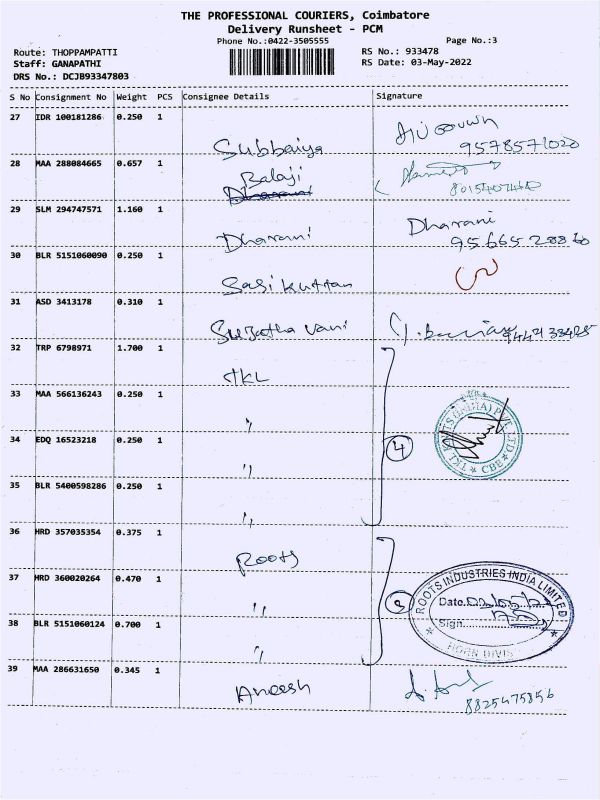 THE PROFESSIONAL COURIERS, Coimbatore
Delivery Runsheet - PCM
Phone No.:0422-3505555
Page No.:3
Route: THOPPAMPATTI
RS No.: 933478
Staff: GANAPATHI
RS Date: 03-May-2022
DRS No.: DCJB93347803
S No Consignment No Weight PCS Consignee Details Signature
27 IDR 100181286 0.250 1 Subbaiya
9578571020
28 MAA 288084665 0.657 1 Balaji
29 SLM 294747571 1.160 1 Dharani Dharani
30 BLR 5151060090 0.250 1 Sasi kuttan
31 ASD 3413178 0.310 1 Sujatha vani
32 TRP 6798971 1.700 1 TKL
33 MAA 566136243 0.250 1 "
34 EDQ 16523218 0.250 1 " 4
35 BLR 5400598286 0.250 1 "
36 HRD 357035354 0.375 1 Roots
37 HRD 360020264 0.470 1 " 3
38 BLR 5151060124 0.700 1 "
39 MAA 286631650 0.345 1 Aneesh
8825475856
ROOTS INDUSTRIES INDIA LIMITED
Date
Sign
HORN DIVIS